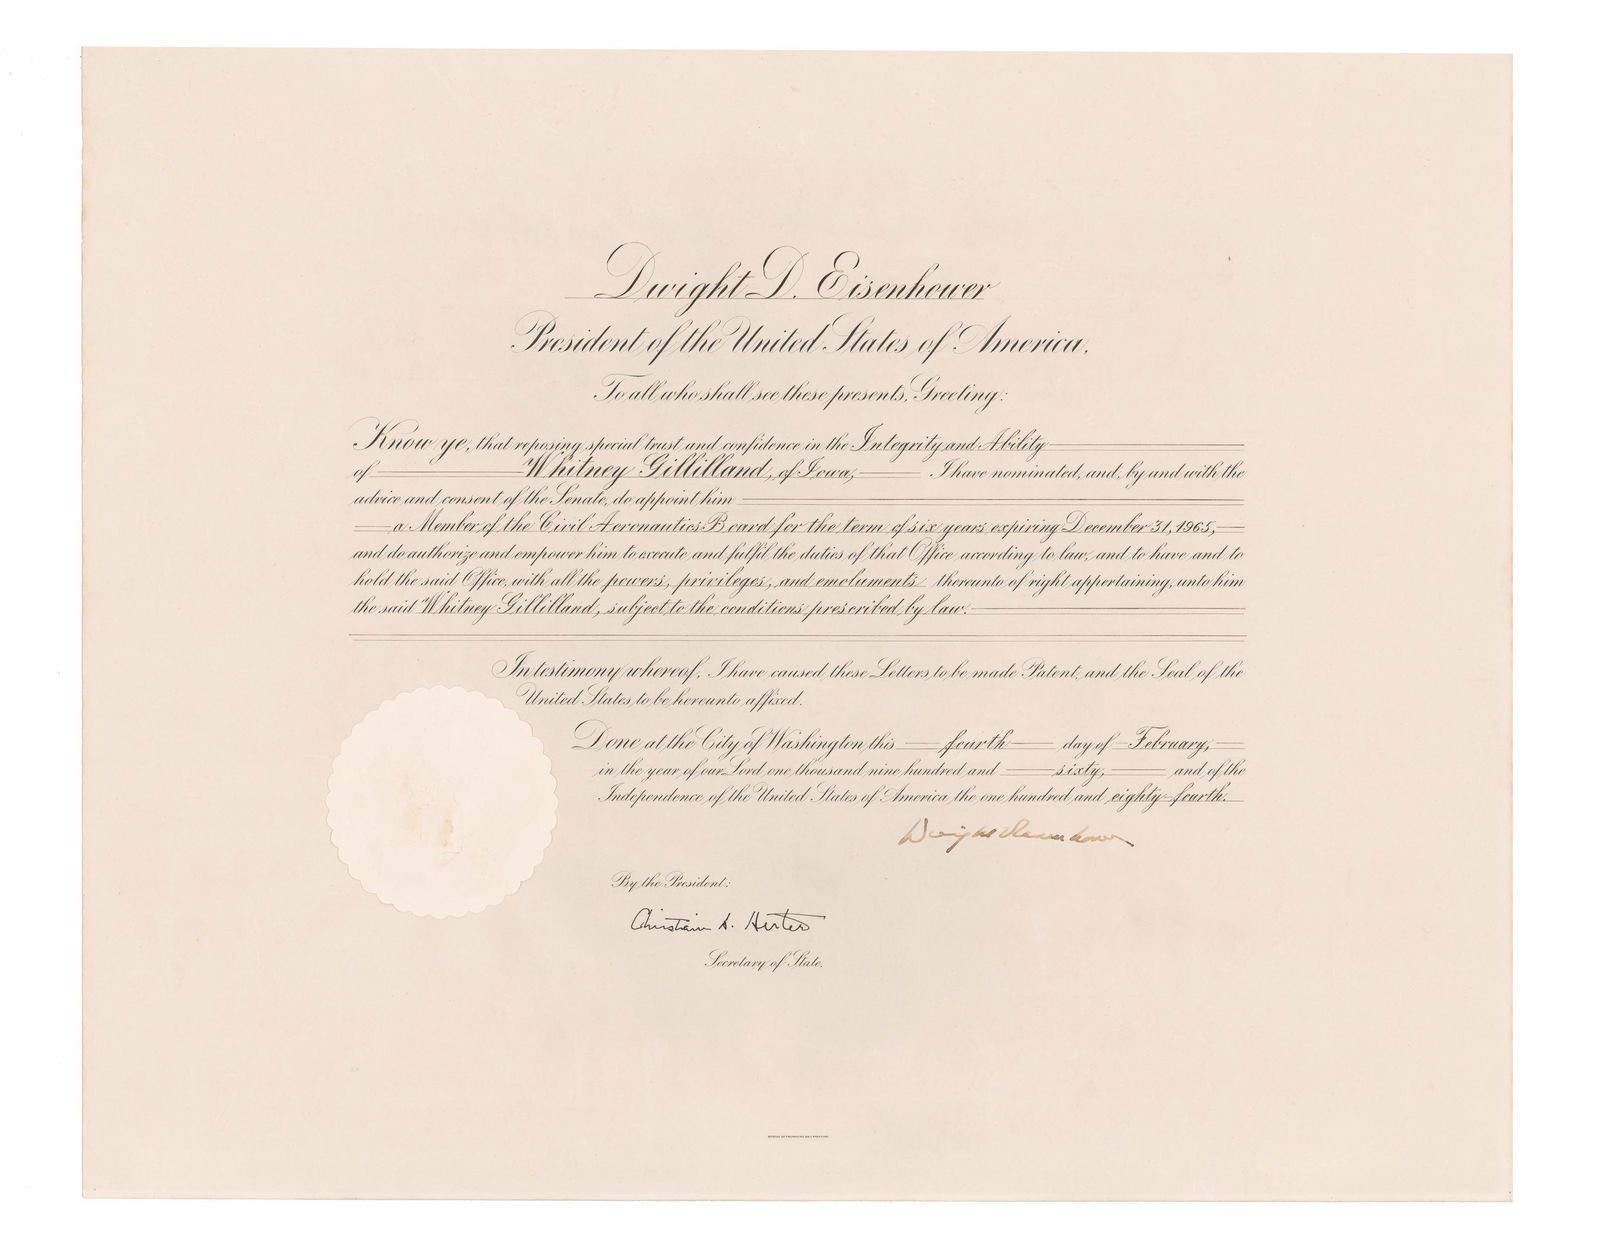 Dwight D. Eisenhower
President of the United States of America.
To all who shall see these presents, Greeting:
Know ye, that reposing special trust and confidence in the Integrity and Ability
of Whitney Gillilland, of Iowa, I have nominated, and, by and with the
advice and consent of the Senate, do appoint him
a Member of the Civil Aeronautics Board for the term of six years expiring December 31, 1965,
and do authorize and empower him to execute and fulfil the duties of that Office according to law, and to have and to
hold the said Office, with all the powers, privileges, and emoluments thereunto of right appertaining, unto him
the said Whitney Gillilland, subject to the conditions prescribed by law.
In testimony whereof, I have caused these Letters to be made Patent, and the Seal of the
United States to be hereunto affixed.
Done at the City of Washington this fourth day of February,
in the year of our Lord one thousand nine hundred and sixty, and of the
Independence of the United States of America the one hundred and eighty-fourth.
Dwight Eisenhower
By the President:
Christian A. Herter
Secretary of State.